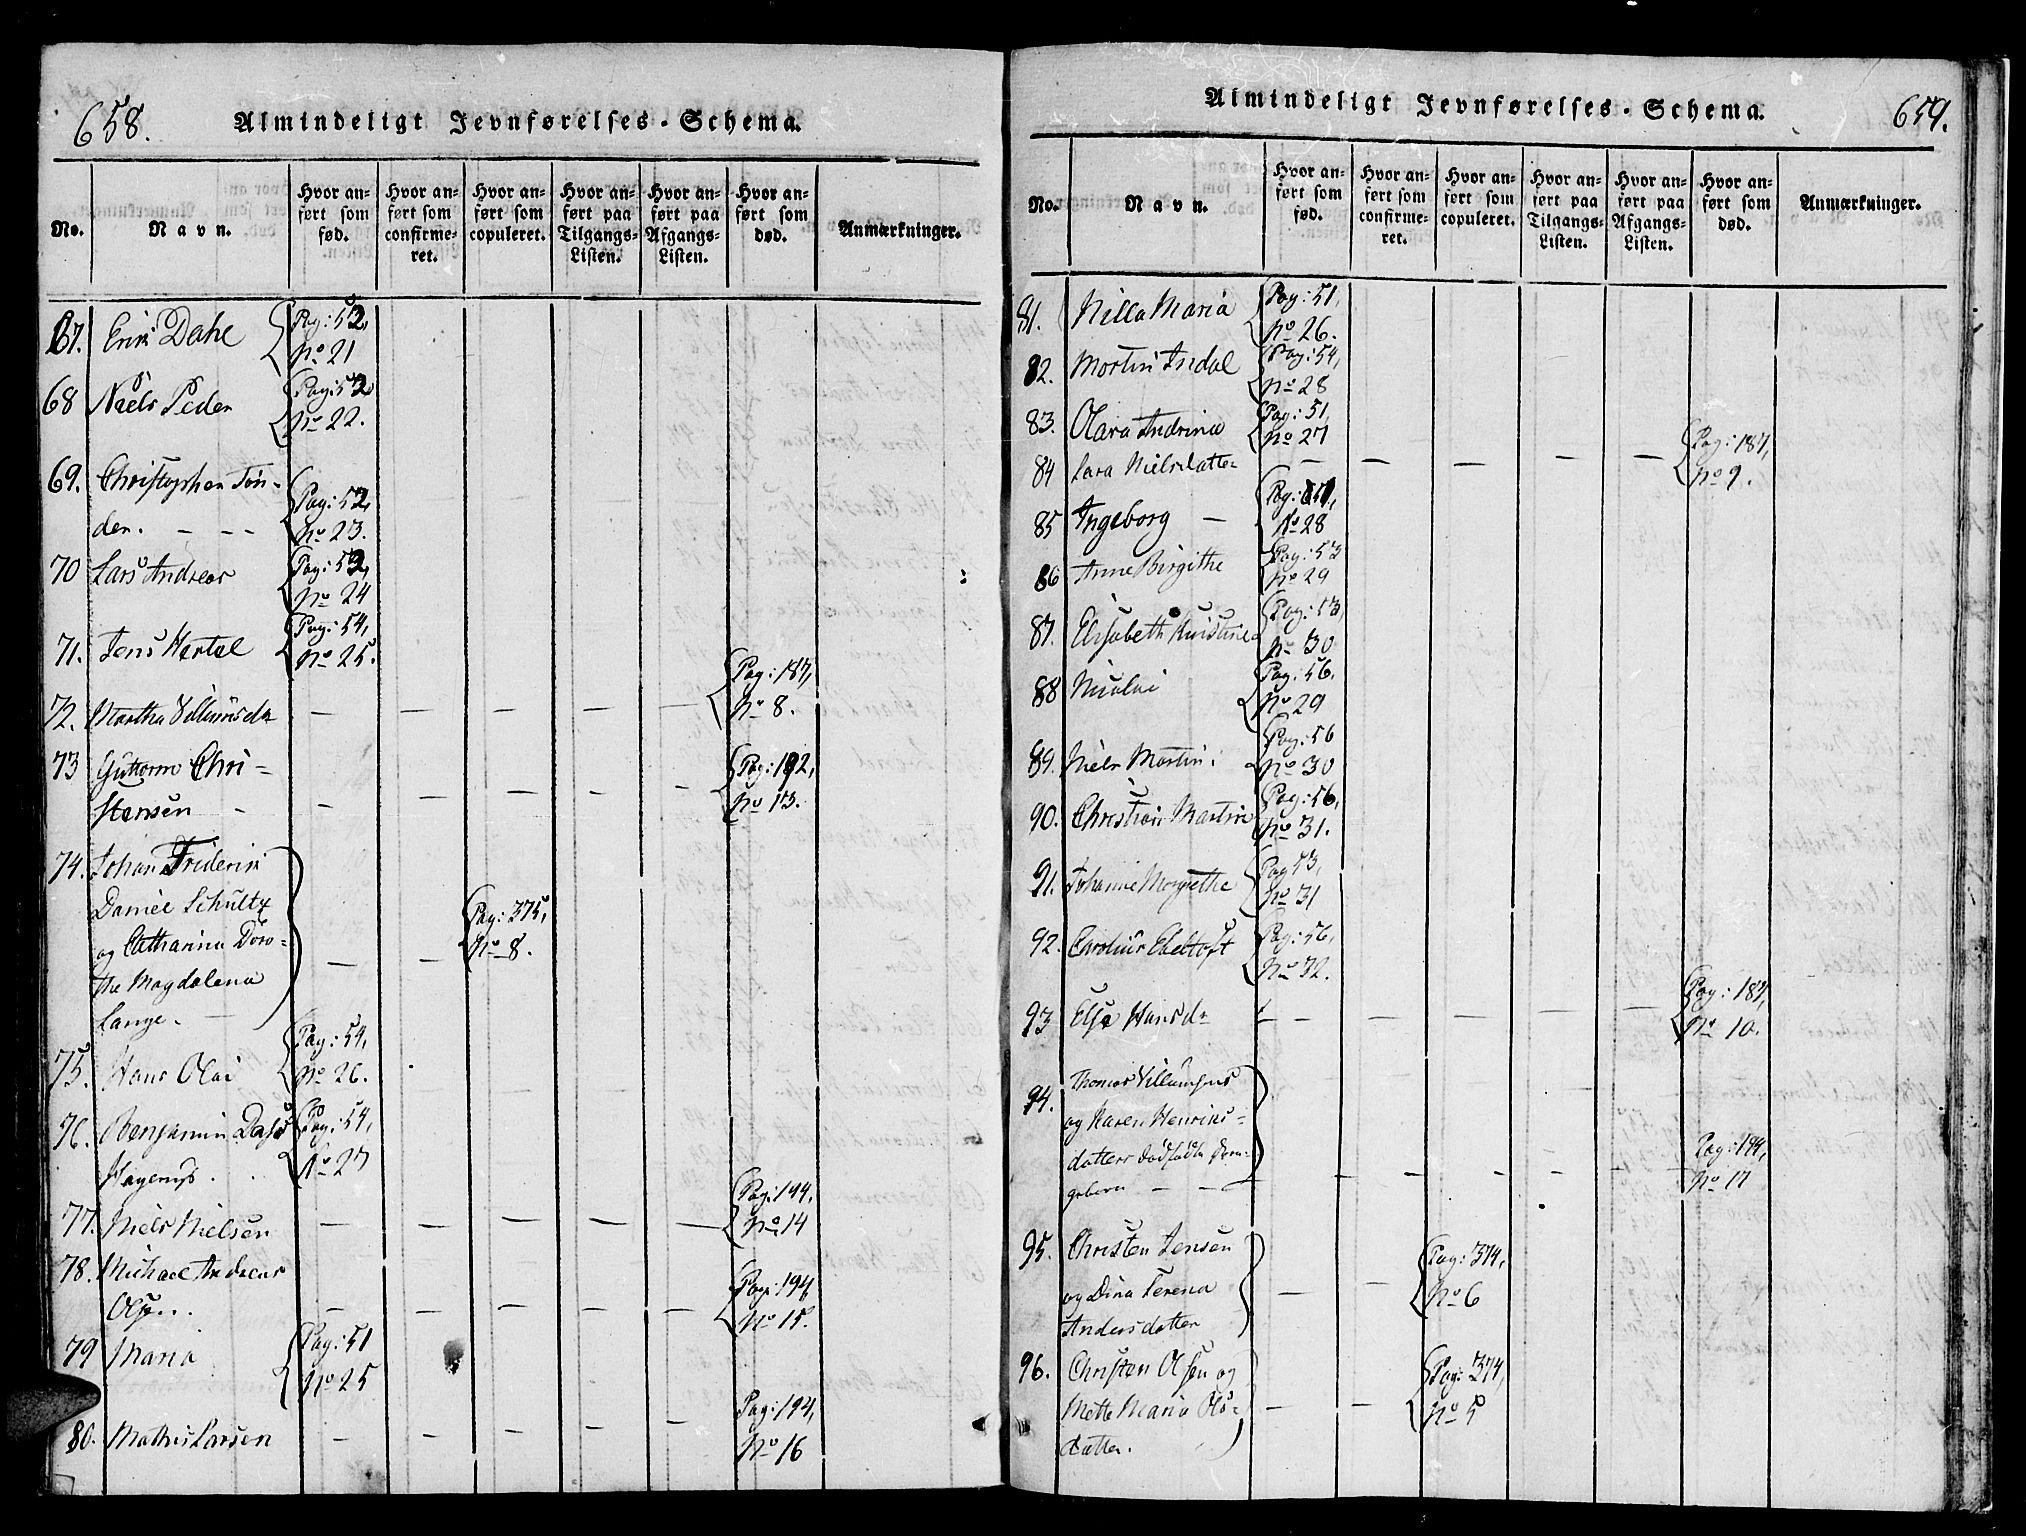 658.
Almindeligt Jevnførelses-Schema.
No.
Navn.
Hvor anført som fød.
Hvor anført som confirmeret.
Hvor anført som copuleret.
Hvor anført paa Tilgangs-Listen.
Hvor anført paa Afgangs-Listen.
Hvor anført som død.
Anmærkninger.
67. Erik Dahl Pag: 52,
No 21
68 Niels Peder Pag: 52
No 22.
69. Christopher Tøn-
den. — Pag: 52,
No 23.
70 Lars Andreas Pag: 52,
No 24
71. Jens Hertel Pag: 54,
No 25.
72. Martha Villumsdr — — — — — Pag: 187,
No 8.
73 Guttorm Chri-
stensen — — — — — — Pag: 192,
No 13.
74. Johan Friderik
Daniel Schultz
og Catharina Doro-
the Magdalena
Lange. — — — Pag: 375,
No 8.
75. Hans Olai Pag: 54,
No 26.
76. Benjamin Dass
Hagerup. Pag: 54,
No 27
77. Niels Nielsen — — — — — Pag: 194,
No 14
78. Michael Andreas
Olsen. — — — — — Pag: 194,
No 15.
79 Maria Pag: 51
No 25
80. Mathis Larsen — — — — — Pag: 194,
No 16
Almindeligt Jevnførelses-Schema.
659.
No.
Navn.
Hvor anført som fød.
Hvor anført som confirmeret.
Hvor anført som copuleret.
Hvor anført paa Tilgangs-Listen.
Hvor anført paa Afgangs-Listen.
Hvor anført som død.
Anmærkninger.
81. Nilla Maria Pag: 51,
No 26.
82. Mortin Indal Pag: 54,
No 28
83. Olava Andrina Pag: 51,
No 27
84 Lara Nielsdatter — — — — — Pag: 187,
No 9.
85 Ingeborg — Pag: 51,
No 28
86 Anne Birgithe Pag: 53
No 29
87. Elisabeth Kristine Pag: 53,
No 30
88 Nicolai Pag: 56.
No 29
89. Niels Martin Pag: 56
No 30
90. Christian Martin Pag: 56,
No 31.
91. Johanne Margrethe Pag 53,
No 31
92. Carolius Ebeltoft Pag: 56,
No 32.
93 Else Hansdr — — — — — Pag: 187,
No 10.
94. Thomas Villumsens
og Karen Henriks-
datters dødfødte
— — — — — — Pag: 194,
No 17
95. Christen Jensen
og Dina Serena
Andersdatter — — Pag: 374,
No 6
96. Christen Olsen og
Mette Maria Ols-
datter. — — Pag: 374,
No 5